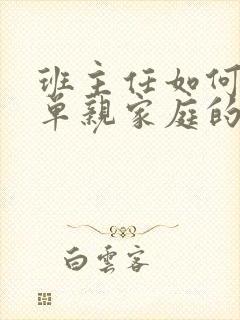 班主任如何
单亲家庭的
白云客